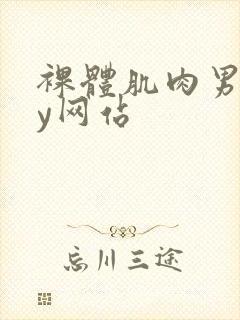 裸體肌肉男
y网佔
忘川三途